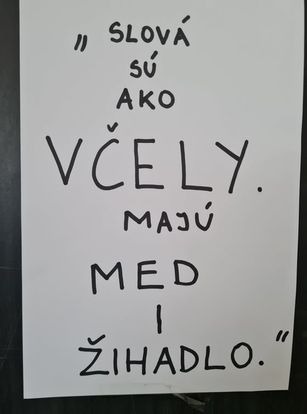 „ SLOVÁ
SÚ
AKO
VČELY.
MAJÚ
MED
I
ŽIHADLO.“